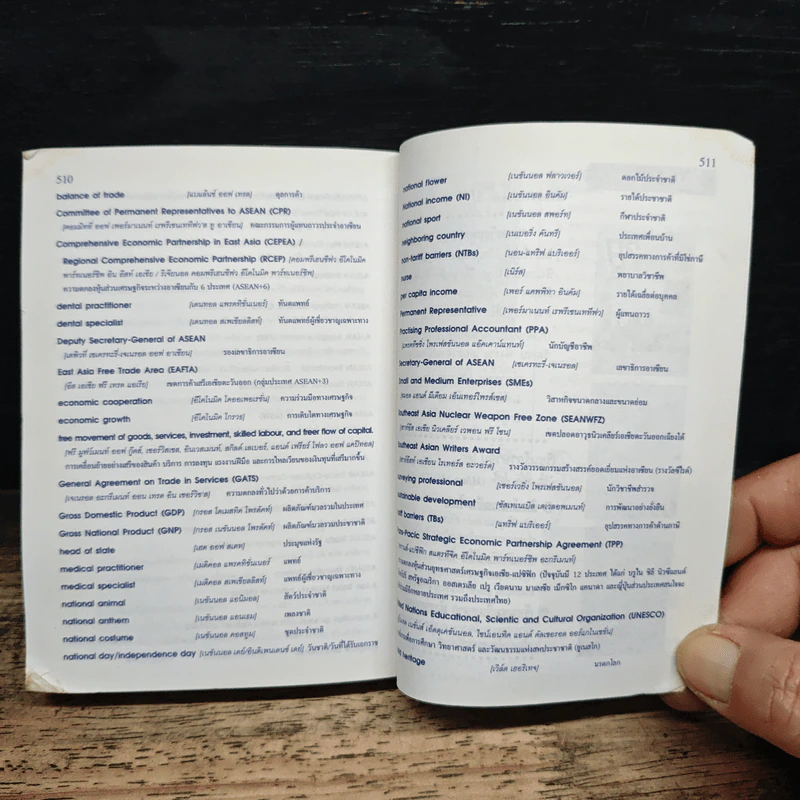 510
balance of trade [แบแล้นซ์ ออฟ เทรด] ดุลการค้า
Committee of Permanent Representatives to ASEAN (CPR)
[คอมมิทที ออฟ เพอร์มาเนนท์ เรพรีเซนเททีฟวส ทู อาเซียน] คณะกรรมการผู้แทนถาวรประจำอาเซียน
Comprehensive Economic Partnership in East Asia (CEPEA) /
Regional Comprehensive Economic Partnership (RCEP) [คอมพรีเฮนซีฟว อีโคโนมิค
พาร์ทเนอร์ชิพ อิน อีสท์ เอเชีย / รีเจียนอล คอมพรีเฮนซีฟว อีโคโนมิค พาร์ทเนอร์ชิพ]
ความตกลงหุ้นส่วนเศรษฐกิจระหว่างอาเซียนกับ 6 ประเทศ (ASEAN+6)
dental practitioner [เดนทอล แพรคทิชันเนอร์] ทันตแพทย์
dental specialist [เดนทอล สเพเชียลลิสท์] ทันตแพทย์ผู้เชี่ยวชาญเฉพาะทาง
Deputy Secretary-General of ASEAN
[เดพิวที เซเครทะรี-เจเนรอล ออฟ อาเซียน] รองเลขาธิการอาเซียน
East Asia Free Trade Area (EAFTA)
[อีส เอเชีย ฟรี เทรด แอเรีย] เขตการค้าเสรีเอเชียตะวันออก (กลุ่มประเทศ ASEAN+3)
economic cooperation [อีโคโนมิค โคออพเพอเรชัน] ความร่วมมือทางเศรษฐกิจ
economic growth [อีโคโนมิค โกรวธ] การเติบโตทางเศรษฐกิจ
free movement of goods, services, investment, skilled labour, and freer flow of capital.
[ฟรี มูฟว์เมนท์ ออฟ กู๊ดส์, เซอร์วิสเซส, อินเวสเมนท์, สกิลด์ เลเบอร์, แอนด์ เฟรียร์ โฟลว ออฟ แคปิทอล]
การเคลื่อนย้ายอย่างเสรีของสินค้า บริการ การลงทุน แรงงานฝีมือ และการไหลเวียนของเงินทุนที่เสรีมากขึ้น
General Agreement on Trade in Services (GATS)
[เจเนรอล อะกรีเมนท์ ออน เทรด อิน เซอร์วิซาส] ความตกลงทั่วไปว่าด้วยการค้าบริการ
Gross Domestic Product (GDP) [กรอส โดเมสทิค โพรดัคท์] ผลิตภัณฑ์มวลรวมในประเทศ
Gross National Product (GNP) [กรอส เนชันนอล โพรดัคท์] ผลิตภัณฑ์มวลรวมประชาชาติ
head of state [เฮด ออฟ สเตท] ประมุขแห่งรัฐ
medical practitioner [เมดิคอล แพรคทิชันเนอร์] แพทย์
medical specialist [เมดิคอล สเพเชียลลิสท์] แพทย์ผู้เชี่ยวชาญเฉพาะทาง
national animal [เนชันนอล แอนิมอล] สัตว์ประจำชาติ
national anthem [เนชันนอล แอนเธม] เพลงชาติ
national costume [เนชันนอล คอสทูม] ชุดประจำชาติ
national day/independence day [เนชันนอล เดย์/อินดิเพนเดนซ์ เดย์] วันชาติ/วันที่ได้รับเอกราช
511
national flower [เนชันนอล ฟลาวเวอร์] ดอกไม้ประจำชาติ
National income (NI) [เนชันนอล อินคัม] รายได้ประชาชาติ
national sport [เนชันนอล สพอร์ท] กีฬาประจำชาติ
neighboring country [เนเบอริ่ง คันทรี] ประเทศเพื่อนบ้าน
non-tariff barriers (NTBs) [นอน-แทริฟ แบริเออร์] อุปสรรคทางการค้าที่มิใช่ภาษี
nurse [เนิร์ส] พยาบาลวิชาชีพ
per capita income [เพอร์ แคพพิทา อินคัม] รายได้เฉลี่ยต่อบุคคล
Permanent Representative [เพอร์มาเนนท์ เรพรีเซนเททีฟว] ผู้แทนถาวร
Practising Professional Accountant (PPA)
โพรเฟสชันนอล แอ๊คเคาน์แทนท์] นักบัญชีอาชีพ
Secretary-General of ASEAN [เซเครทะรี-เจเนรอล] เลขาธิการอาเซียน
Small and Medium Enterprises (SMEs)
แอนด์ มีเดียม เอ็นเทอร์ไพรส์เซส] วิสาหกิจขนาดกลางและขนาดย่อม
Southeast Asia Nuclear Weapon Free Zone (SEANWFZ)
เอเชีย นิวเคลียร์ เวพอน ฟรี โซน] เขตปลอดอาวุธนิวเคลียร์เอเชียตะวันออกเฉียงใต้
Southeast Asian Writers Award
เอเชียน ไรเทอร์ส อะวอร์ด] รางวัลวรรณกรรมสร้างสรรค์ยอดเยี่ยมแห่งอาเซียน (รางวัลซีไรต์)
veying professional [เซอร์เวย์อิ่ง โพรเฟสชันนอล] นักวิชาชีพสำรวจ
stainable development [ซัสเทเนเบิล เดเวลอพเมนท์] การพัฒนาอย่างยั่งยืน
barriers (TBs) [แทริฟ แบริเออร์] อุปสรรคทางการค้าด้านภาษี
s-Pacic Strategic Economic Partnership Agreement (TPP)
แปซิฟิก สแตรทีจิค อีโคโนมิค พาร์ทเนอร์ชิพ อะกรีเมนท์]
ตกลงหุ้นส่วนยุทธศาสตร์เศรษฐกิจเอเชีย-แปซิฟิก (ปัจจุบันมี 12 ประเทศ ได้แก่ บรูไน ชิลี นิวซีแลนด์
สหรัฐอเมริกา ออสเตรเลีย เปรู เวียดนาม มาเลเซีย เม็กซิโก แคนาดา และญี่ปุ่นส่วนประเทศสนใจจะ
อีกหลายประเทศ รวมถึงประเทศไทย)
ed Nations Educational, Scientic and Cultural Organization (UNESCO)
เนชันส์ เอ็ดดุเคชันนอล, ไซน์เอนทิค แอนด์ คัลเชอรอล ออร์แกไนเซชัน]
เพื่อการศึกษา วิทยาศาสตร์ และวัฒนธรรมแห่งสหประชาชาติ (ยูเนสโก)
heritage [เวิร์ล์ด เฮอริเทจ] มรดกโลก